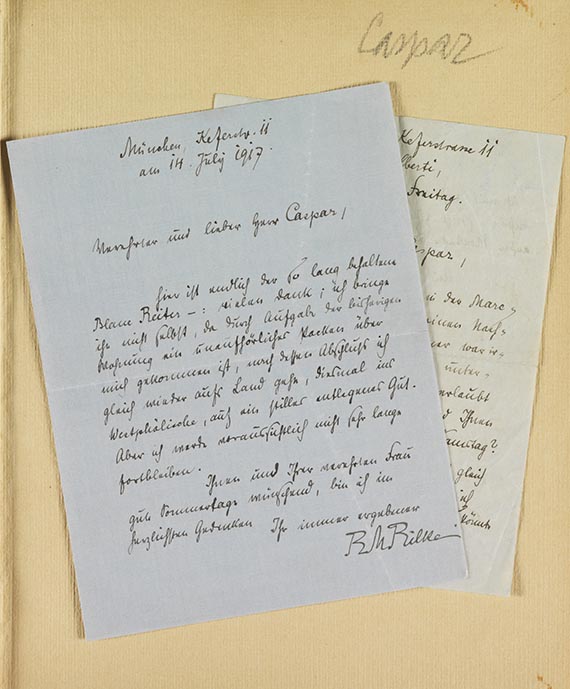 Caspar
München, Keferstr. 11
am 14. July 1917.
Verehrter und lieber Herr Caspar,
hier ist endlich der so lang behaltene
Blaue Reiter —: vielen Dank; ich bringe
ihn nicht selbst, da durch Aufgabe der bisherigen
Wohnung ein unaufhörliches Packen über
mich gekommen ist, nach dessen Abschluß ich
gleich wieder aufs Land gehe, diesmal ins
Westphälische, auf ein stilles entlegenes Gut.
Aber ich werde voraussichtlich nicht sehr lange
fortbleiben.
Ihnen und Ihrer verehrten Frau
gute Sommertage wünschend, bin ich im
herzlichsten Gedenken Ihr immer ergebener
RMRilke
Keferstrasse 11
Freitag.
Caspar,
in der Marc-
einen Nach-
unter-
erlaubt
Ihnen
Samstag?
gleich
ich
könnte